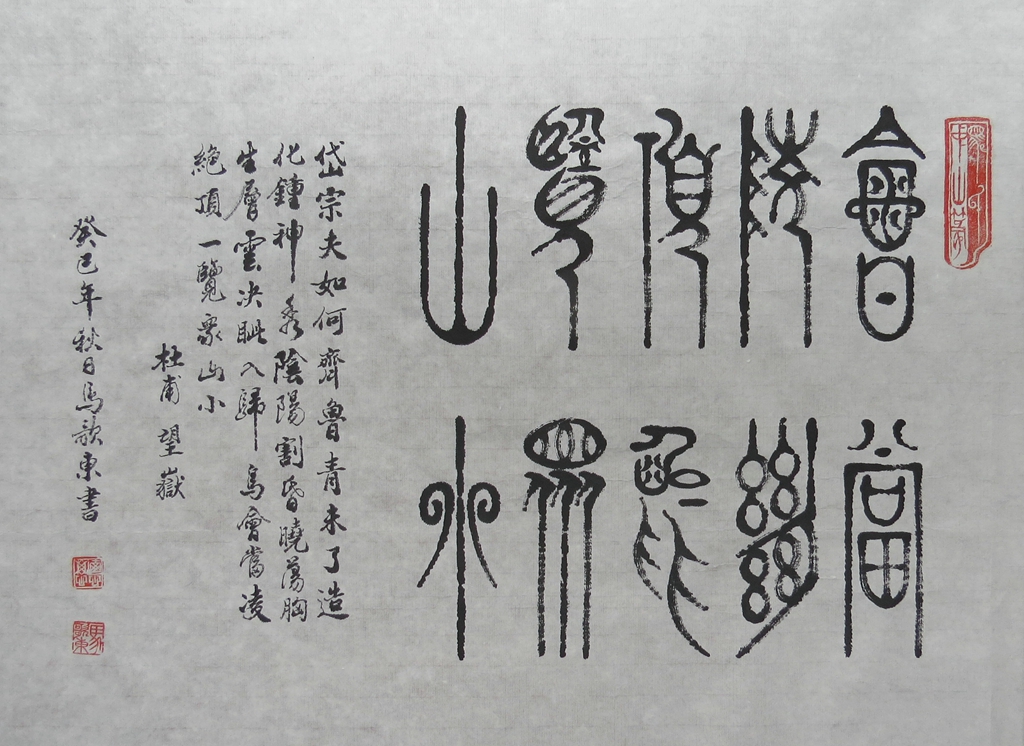 會當
陵絕
頂一
覽眾
山小
岱宗夫如何齊魯青未了造
化鍾神秀陰陽割昏曉蕩胸
生層雲决眦入歸鳥會當凌
絕頂一覽眾山小
杜甫望嶽
癸巳年秋日馬歌東書